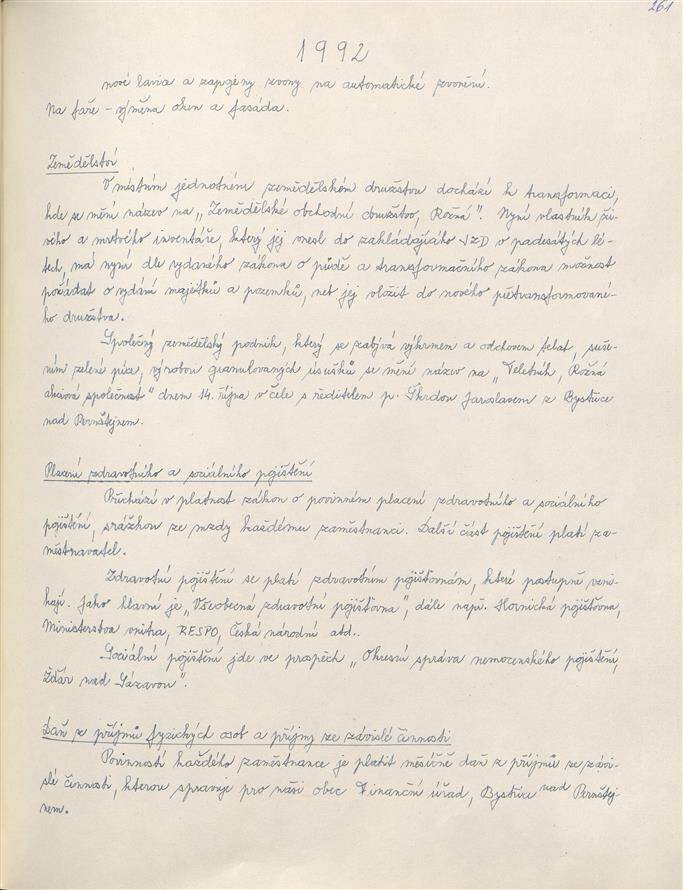 261
1992
nové lavice a zapojeny zvony na automatické zvonění.
Na faře - výměna oken a fasáda.
Zemědělství
V místním jednotném zemědělském družstvu dochází k transformaci,
kde se mění název na „Zemědělské obchodní družstvo, Rožná". Nyní vlastník ži-
vého a mrtvého inventáře, který jej vnesl do zakládajícího JZD v padesátých lé-
tech, má nyní dle vydaného zákona o půdě a transformačního zákona možnost
požádat o vydání majetků a pozemků, neb jej vložit do nového přetransformované-
ho družstva.
Společný zemědělský podnik, který se zabývá výkrmem a odchovem telat, suše-
ním zelené píce, výrobou granulovaných úsušků se mění název na „Teletník, Rožná
akciová společnost" dnem 14. října v čele s ředitelem p. Škrdou Jaroslavem z Bystřice
nad Pernštejnem.
Placení zdravotního a sociálního pojištění
Přichází v platnost zákon o povinném placení zdravotního a sociálního
pojištění, srážkou ze mzdy každému zaměstnanci. Další část pojištění platí za-
městnavatel.
Zdravotní pojištění se platí zdravotním pojišťovnám, které postupně vzni-
kají. Jako hlavní je „Všeobecná zdravotní pojišťovna", dále např. Hornická pojišťovna,
Ministerstva vnitra, RESPO, Česká národní atd..
Sociální pojištění jde ve prospěch „Okresní správa nemocenského pojištění,
Žďár nad Sázavou".
Daň z příjmů fyzických osob a příjmy ze závislé činnosti
Povinností každého zaměstnance je platit měsíčně daň z příjmů ze závi-
slé činnosti, kterou spravuje pro naši obec Finanční úřad, Bystřice nad Pernštej-
nem.